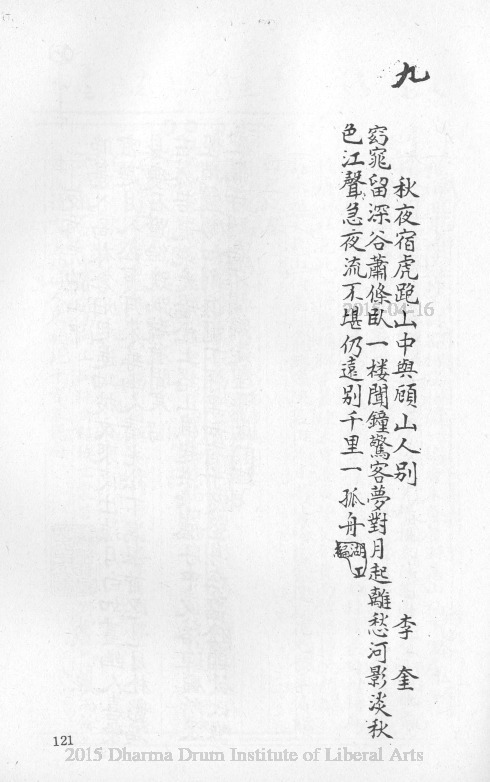 九
秋夜宿虎跑山中與顧山人别 李奎
窈窕留深谷蕭條臥一楼聞鐘驚客夢對月起離愁河影淡秋
色江聲急夜流不堪仍遠别千里一孤舟
湖上
121
2015-04-16
2015 Dharma Drum Institute of Liberal Arts